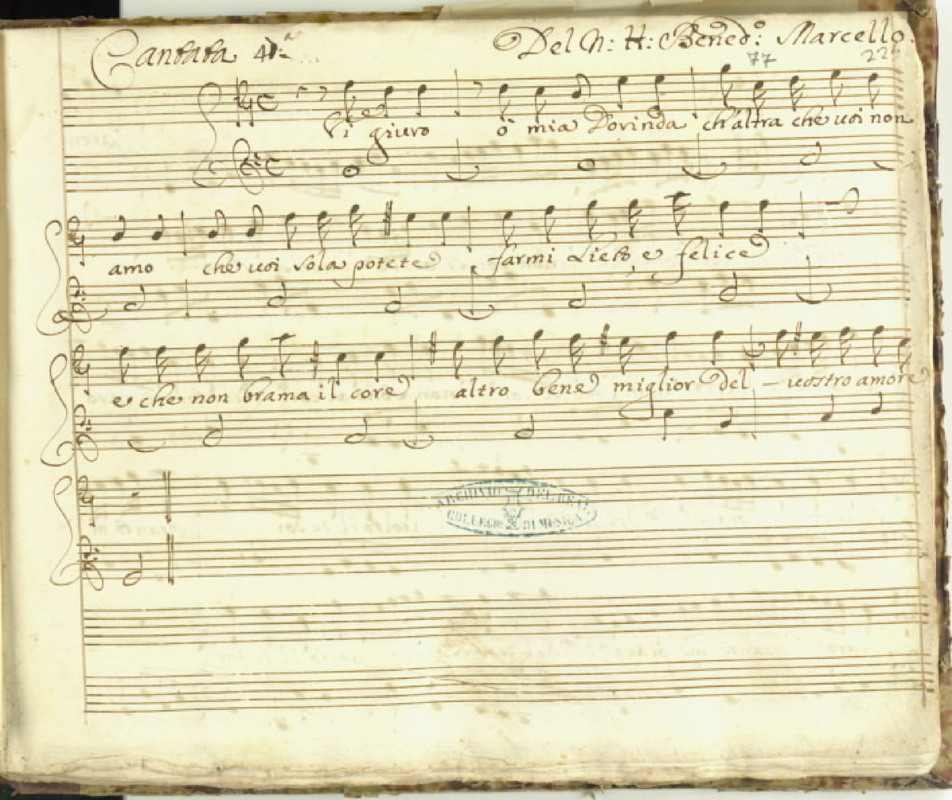 Cantata 4.ª
Del N: H: Bened:º Marcello.
77
22
Vi giuro ò mia Dorinda ch'altra che voi non
amo che voi sola potete farmi Lieto e felice
e che non brama il core altro bene miglior del – vostro amore
ARCHIVIO DEL REAL
COLLEGIO DI MUSICA